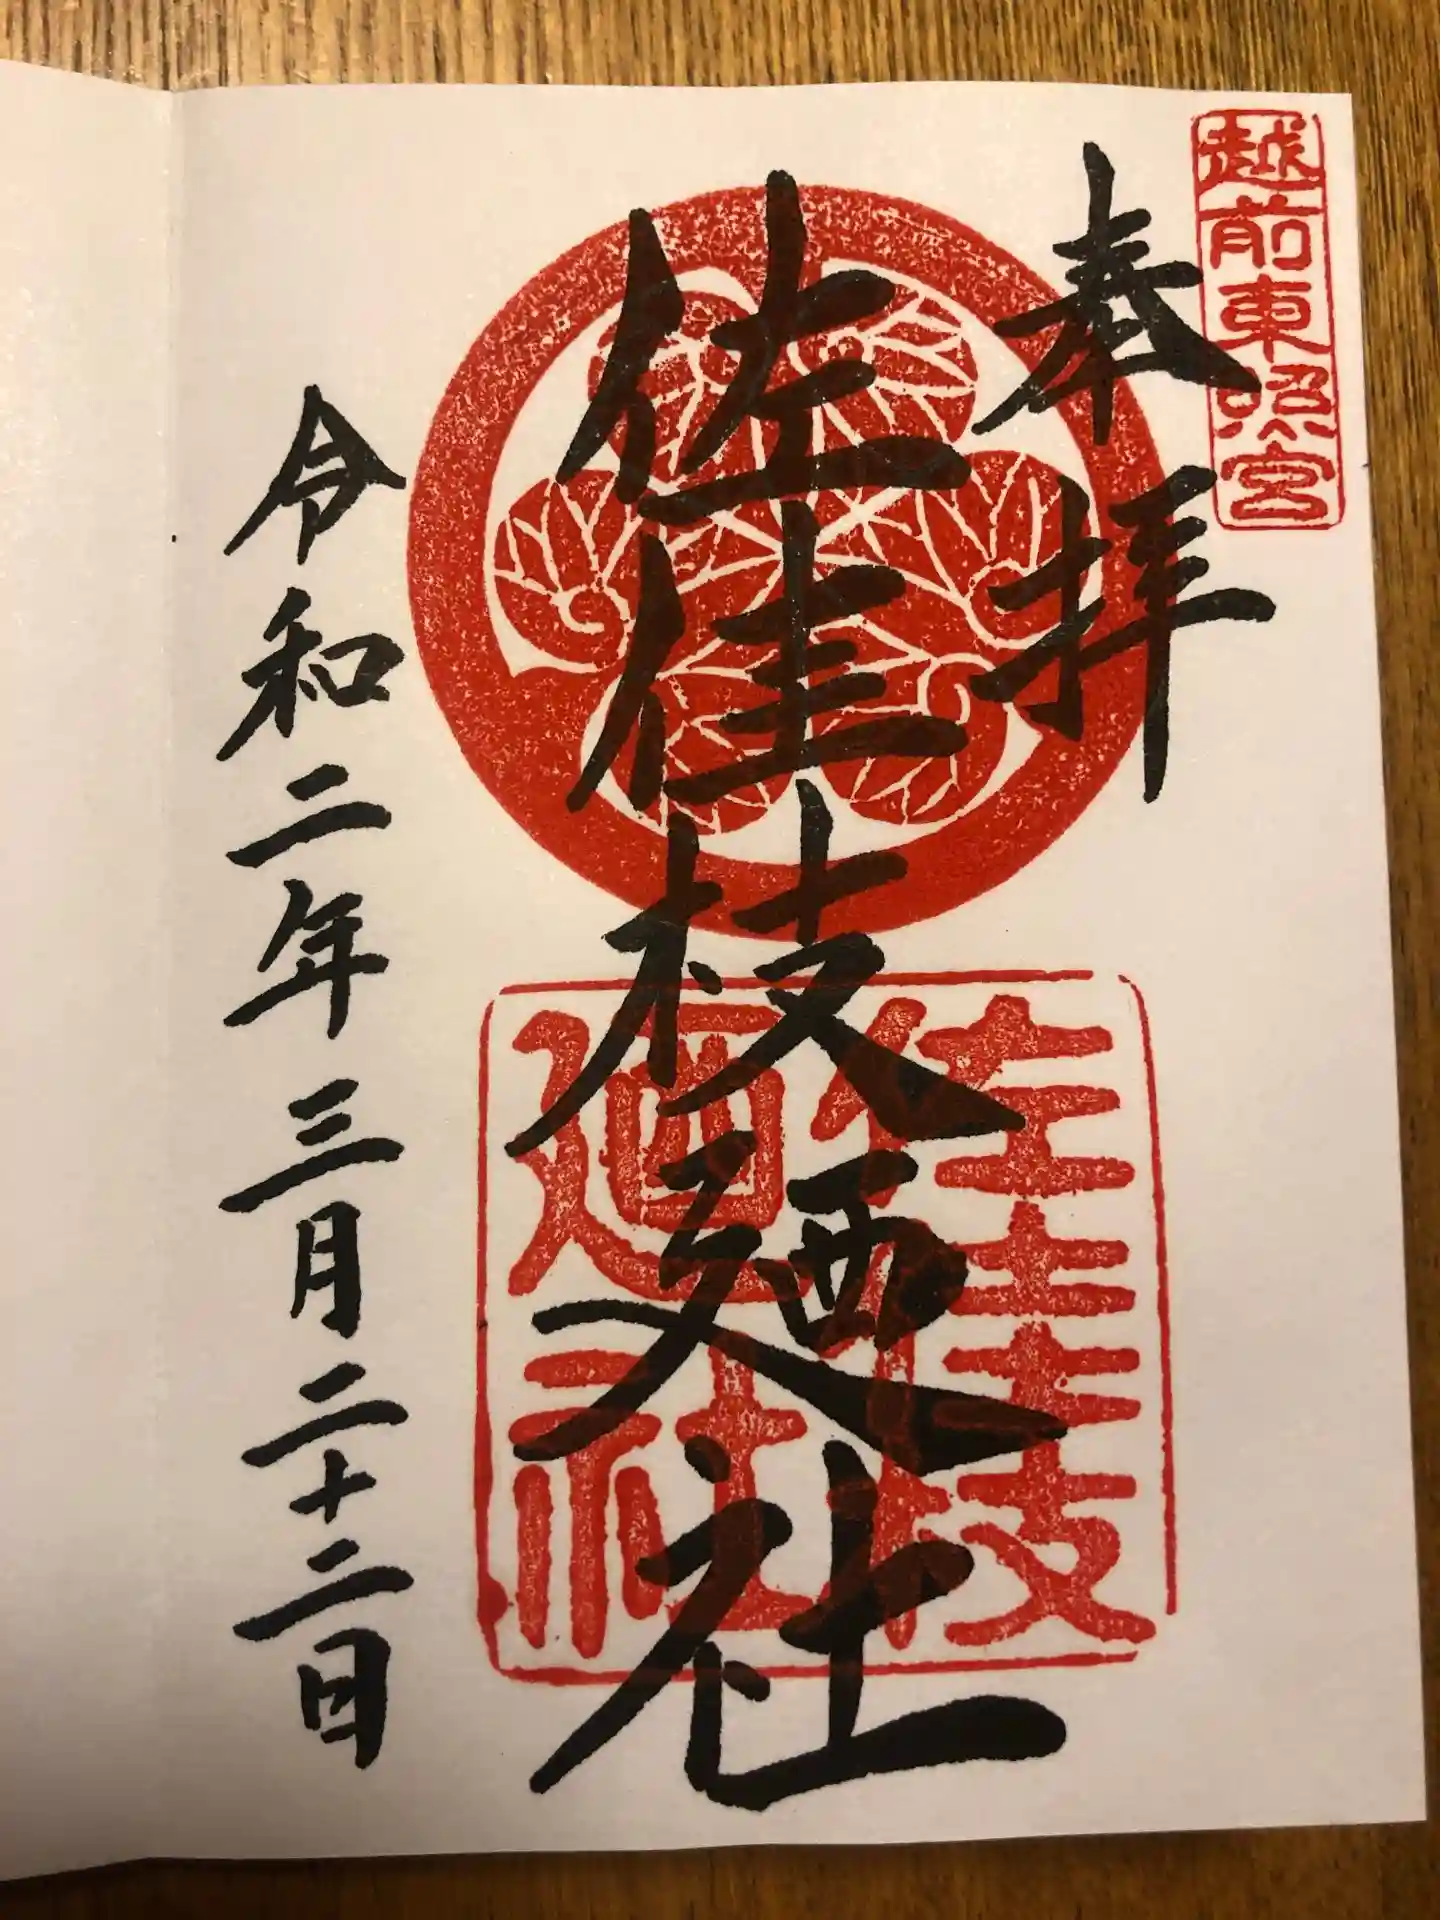 越前東照宮
奉拝
佐佳枝廼社
佐佳枝
廼社
令和二年三月二十二日